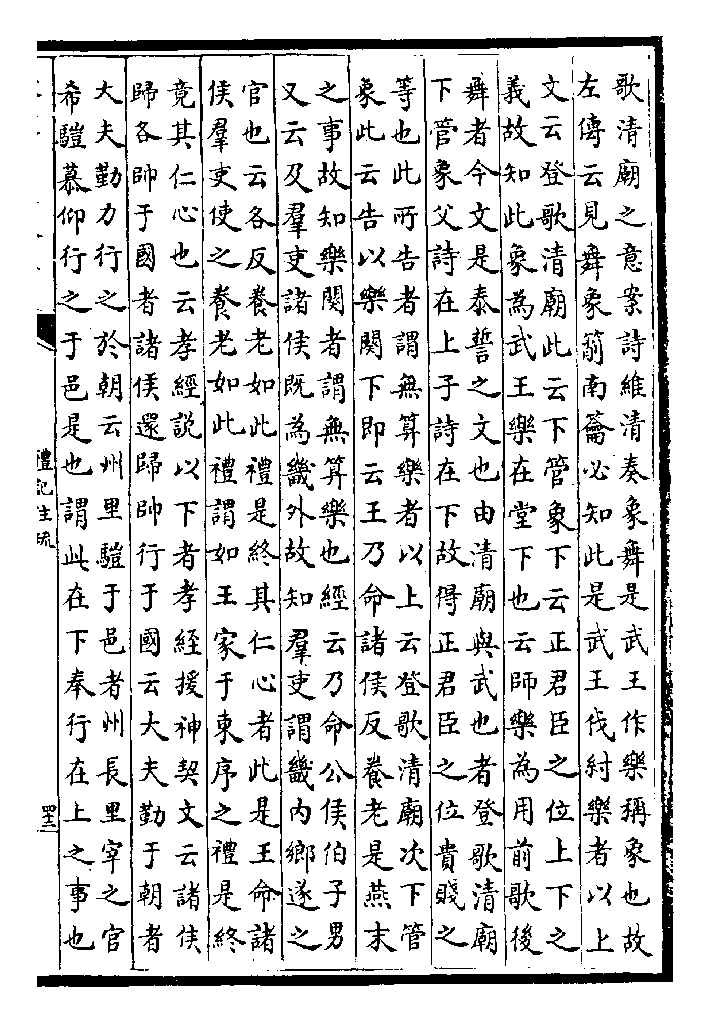 歌清廟之意案詩維清奏象舞是武王作樂稱象也故
左傳云見舞象箾南籥必知此是武王伐紂樂者以上
文云登歌清廟此云下管象下云正君臣之位上下之
義故知此象為武王樂在堂下也云師樂為用前歌後
舞者今文是泰誓之文也由清廟與武也者登歌清廟
下管象父詩在上子詩在下故得正君臣之位貴賤之
等也此所告者謂無算樂者以上云登歌清廟次下管
象此云告以樂闋下即云王乃命諸侯反養老是燕末
之事故知樂闋者謂無算樂也經云乃命公侯伯子男
又云及羣吏諸侯既為畿外故知羣吏謂畿內鄉遂之
官也云各反養老如此禮是終其仁心者此是王命諸
侯羣吏使之養老如此禮謂如王家于東序之禮是終
竟其仁心也云孝經說以下者孝經援神契文云諸侯
歸各帥于國者諸侯還歸帥行于國云大夫勤于朝者
大夫勤力行之於朝云州里騹于邑者州長里宰之官
希騹慕仰行之于邑是也謂此在下奉行在上之事也
禮記注疏